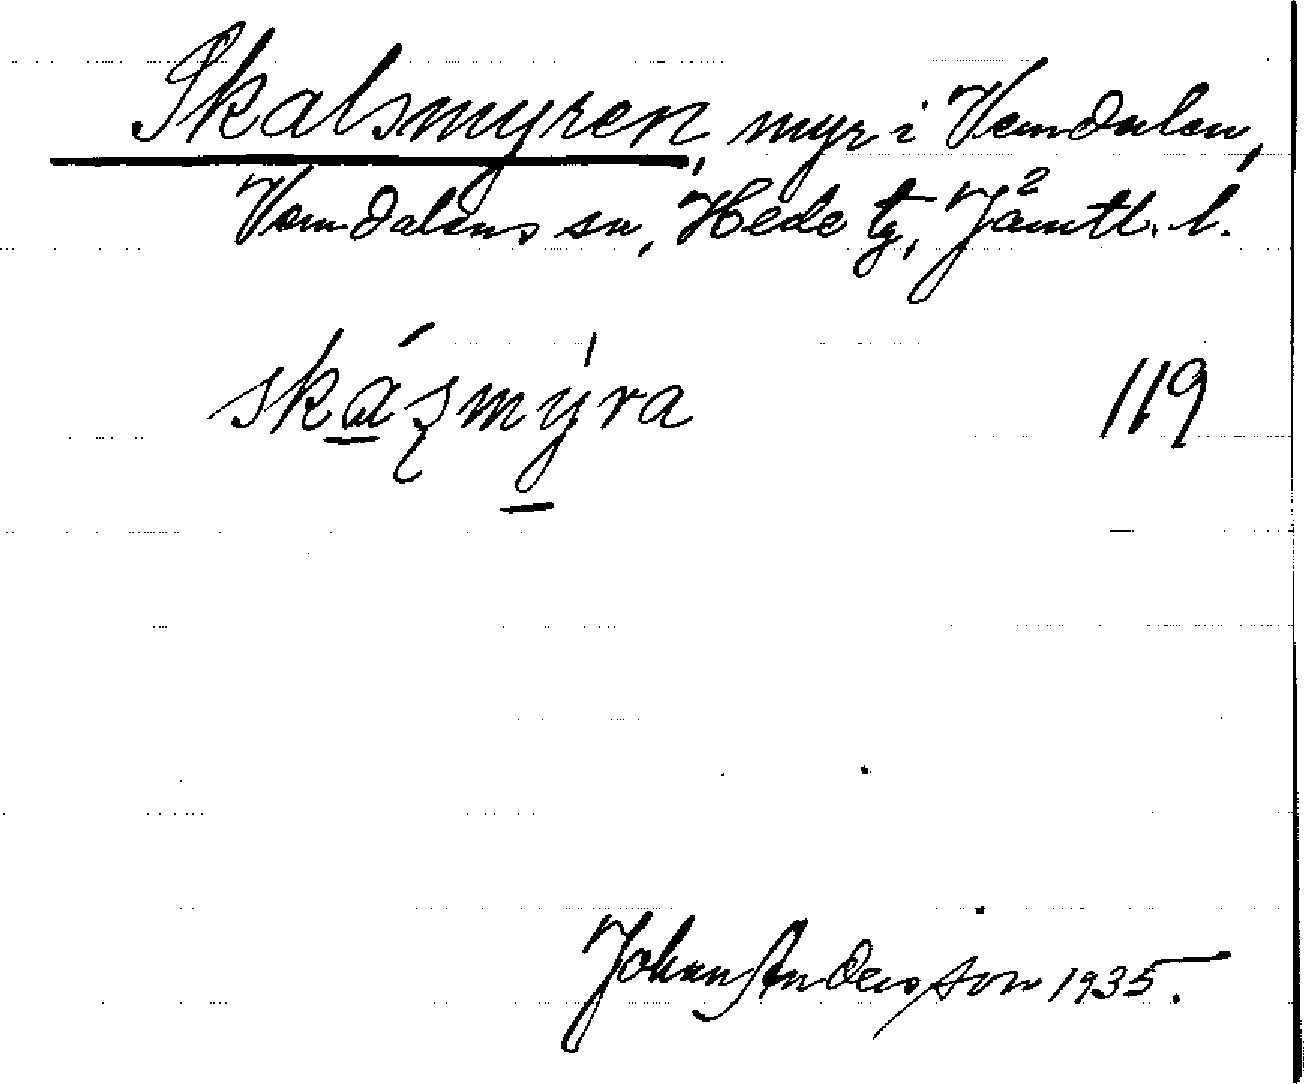 Skalsmyren, myr i Vemdalen,
Vemdalens sn, Hede tg, Jämtl. l.
skáʂmýra 119
Johan Andersson 1935.